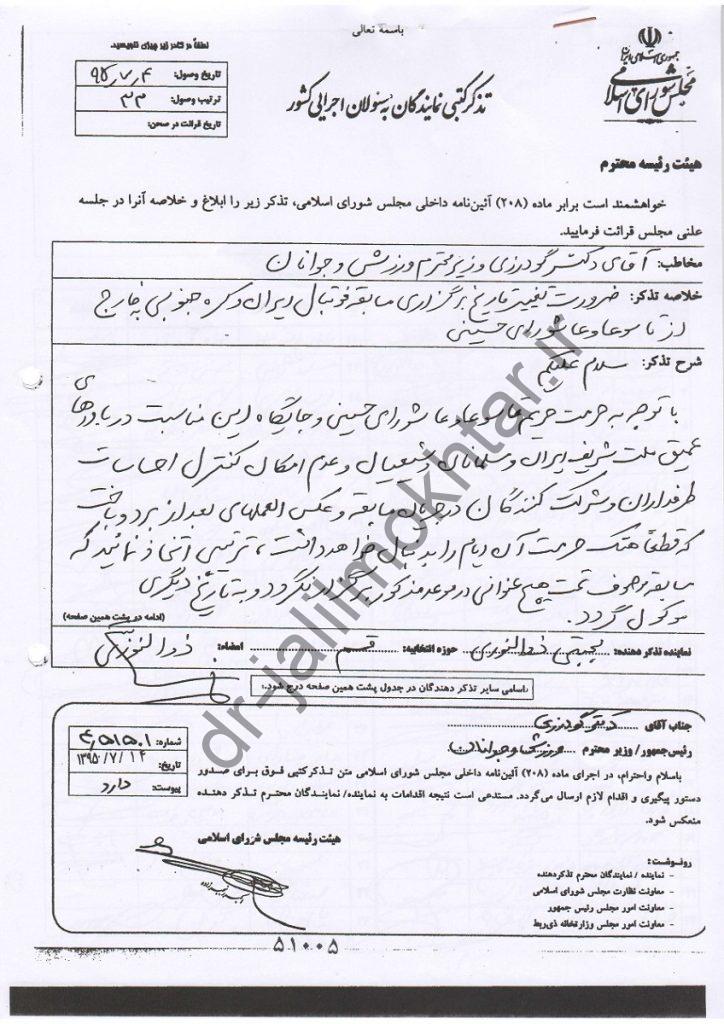 باسمه تعالی
جمهوری اسلامی ایران
مجلس شورای اسلامی
تذکر کتبی نمایندگان به مسئولان اجرایی کشور
لطفاً در کادر زیر چیزی ننویسید.
تاریخ وصول: ۹۵/۷/۴
ترتیب وصول: ۳۳
تاریخ قرائت در صحن:
هیئت رئیسه محترم
خواهشمند است برابر ماده (۲۰۸) آئین‌نامه داخلی مجلس شورای اسلامی، تذکر زیر را ابلاغ و خلاصه آنرا در جلسه
علنی مجلس قرائت فرمایید.
مخاطب: آقای دکتر گودرزی وزیر محترم ورزش و جوانان
خلاصه تذکر: ضرورت تغییر تاریخ برگزاری مسابقه فوتبال ایران و کره جنوبی به خارج
از تاسوعا و عاشورای حسینی
شرح تذکر: سلام علیکم
با توجه به حرمت حریم تاسوعا و عاشورای حسینی و جایگاه این مناسبت در باورهای
عمیق ملت شریف ایران و مسلمانان و شیعیان و عدم امکان کنترل احساسات
طرفداران و شرکت کنندگان در جریان مسابقه و عکس العملهای بعد از برد و باخت
که قطعاً هتک حرمت آن ایام را بدنبال خواهد داشت، ترتیبی اتخاذ نمائید که
مسابقه موصوف تحت هیچ عنوانی در موعد مذکور برگزار نگردد و به تاریخ دیگری
موکول گردد.
(ادامه در پشت همین صفحه)
نماینده تذکر دهنده: مجتبی ذوالنوری حوزه انتخابیه: قم امضاء: ذوالنوری
اسامی سایر تذکر دهندگان در جدول پشت همین صفحه درج شود.
جناب آقای دکتر گودرزی
رئیس‌جمهور / وزیر محترم ورزش و جوانان
شماره: ۴۵۱۵۰۱
تاریخ: ۱۳۹۵/۷/۱۴
پیوست: دارد
باسلام واحترام، در اجرای ماده (۲۰۸) آئین‌نامه داخلی مجلس شورای اسلامی متن تذکر کتبی فوق برای صدور
دستور پیگیری و اقدام لازم ارسال می‌گردد. مستدعی است نتیجه اقدامات به نماینده/ نمایندگان محترم تذکر دهنده
منعکس شود.
هیئت رئیسه مجلس شورای اسلامی
رونوشت:
- نماینده / نمایندگان محترم تذکردهنده
- معاونت نظارت مجلس شورای اسلامی
- معاونت امور مجلس رئیس جمهور
- معاونت امور مجلس وزارتخانه ذی‌ربط
۵۱۰۰۵
dr-jalilmokhtar.ir